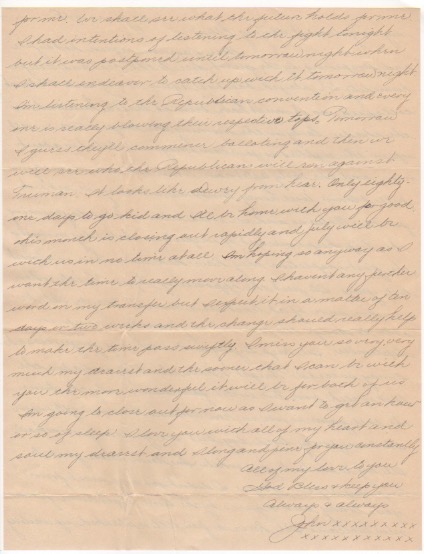 for me. We shall see what the future holds for me
I had intentions of listening to the fight tonight
but it was postponed until tomorrow night when
I shall endeavor to catch up with it tomorrow night
Im listening to the Republican convention and every
one is really blowing their respective tops. Tomorrow
I guess they'll commence balloting and then we
will see who the Republican will run against
Truman. It looks like Dewey from hear. Only eighty-
one days to go kid and Ill be home with you for good
this month is closing out rapidly and july will be
with us in no time at all. Im hoping so anyway as I
want the time to really move along. I havent any further
word on my transfer but I expect it in a matter of ten
days or two weeks and the change should really help
to make the time pass swiftly. I miss you so very very
much my dearest and the sooner that I can be with
you the more wonderful it will be for both of us
Im going to close out for now as I want to get an hour
or so of sleep. I love you with all of my heart and
soul my dearest and I long and pine for you constantly
All of my love to you
God Bless & keep you
Always & always
John xxxxxxxxx
xxxxxxxxxxx